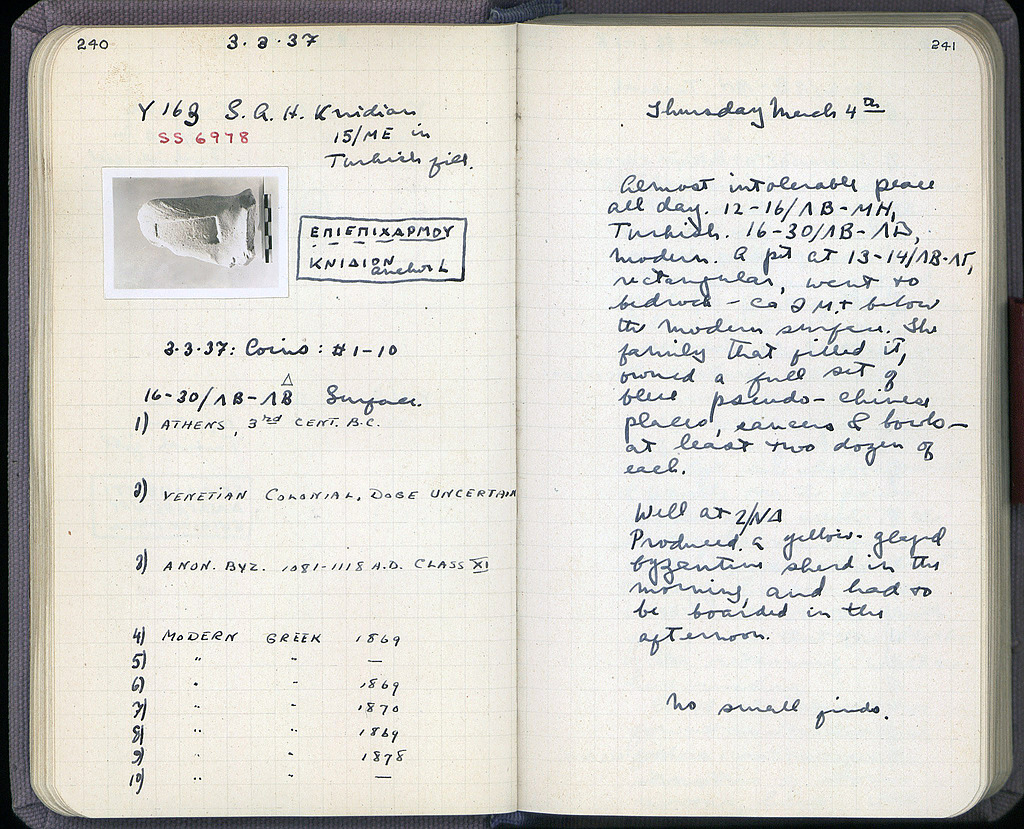 240
3.3.37
Y 163 S.A.H. Knidian
SS 6978
15/ME in
Turkish fill.
ΕΠΙΕΠΙΧΑΡΜΟΥ
ΚΝΙΔΙΟΝ
anchor L
3.3.37: Coins: #1-10
Δ
16-30/ΛB-ΛB Surface.
1) ATHENS, 3rd CENT. B.C.
2) VENETIAN COLONIAL, DOGE UNCERTAIN
3) ANON. BYZ. 1081-1118 A.D. CLASS XI
4) MODERN GREEK 1869
5) " " —
6) " " 1869
7) " " 1870
8) " " 1869
9) " " 1878
10) " " —
241
Thursday March 4th
Almost intolerable peace
all day. 12-16/ΛB-MH,
Turkish. 16-30/ΛB-ΛΔ,
modern. A pit at 13-14/ΛB-ΛΓ,
rectangular, went to
bedrock - ca 2 M.+ below
the modern surface. The
family that filled it,
owned a full set of
blue pseudo-chinese
plates, saucers & bowls—
at least two dozen of
each.
Well at 2/ΝΔ
Produced a yellow-glazed
byzantine sherd in the
morning, and had to
be boarded in the
afternoon.
No small finds.